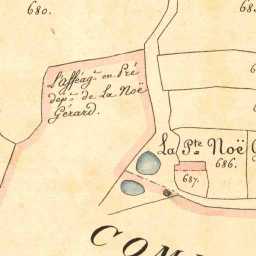 680.
38
L'afféag.t en Pré
dep.t de La Noë
Gérard.
La P.te Noë
686.
687.
COM